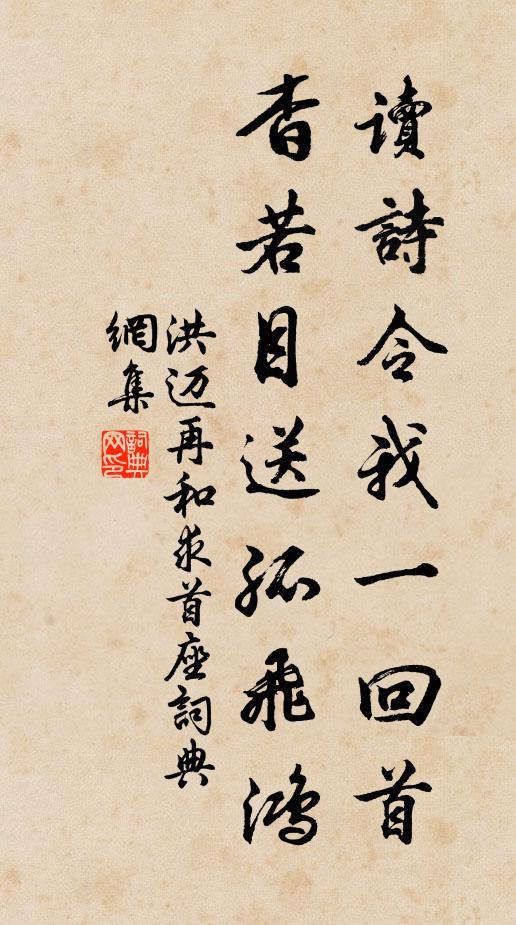 讀詩令我一回首
杳若目送孤飛鴻
洪迈再和求首座詞典
網集
詞典
网印